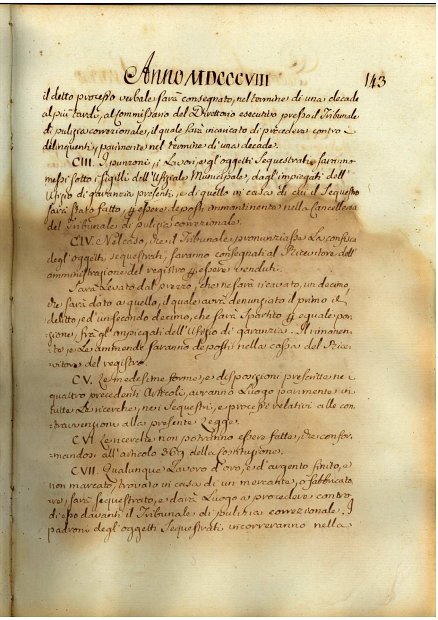 Anno MDCCCVIII
143
il detto processo verbale sarà consegnato, nel termine di una decade
al più tardi, al Commissario del Direttorio esecutivo presso il Tribunale
di pulizia correzionale, il quale sarà incaricato di procedere contro i
delinquenti, parimente nel termine di una decade.
CIII. I punzoni, i Lavori, e gl'oggetti Sequestrati saranno
messi sotto i sigilli dell'Ufiziale Municipale, dagl'impiegati dell'
Ufizio di garanzia presenti, e di quello in casa di cui il Sequestro
sarà stato fatto, per essere depositati immantinente nella Cancelleria
del Tribunale di pulizia correzionale.
CIV. Nel caso, che il Tribunale pronunziasse la confisca
degl'oggetti sequestrati, saranno consegnati al Ricevitore dell'
amministrazione del registro per essere venduti.
Sarà levato dal prezzo, che ne sarà ricavato, un decimo,
che sarà dato a quello, il quale avrà denunziato il primo il
delitto, ed un secondo decimo, che sarà spartito per eguale por-
zione, frà gl'impiegati dell'Ufizio di garanzia. Il rimanen-
te, e le ammende saranno depositi nella cassa del Rice-
vitore del registro.
CV. Le medesime forme, e disposizioni prescritte ne i
quattro precedenti Articoli, avranno Luogo parimente in
tutte le ricerche, nei Sequestri, e processi relativi alle con-
travvenzioni alla presente Legge.
CVI. Le ricerche non potranno essere fatte, che confor-
mandosi all'articolo 359 della Costituzione.
CVII. Qualunque Lavoro d'oro, e d'argento finito, e
non marcato, trovato in casa di un mercante, o fabbricato-
re, sarà sequestrato, e darà Luogo a procedere contro
di esso davanti il Tribunale di pulizia correzionale. I
padroni degl'oggetti Sequestrati incorreranno nella